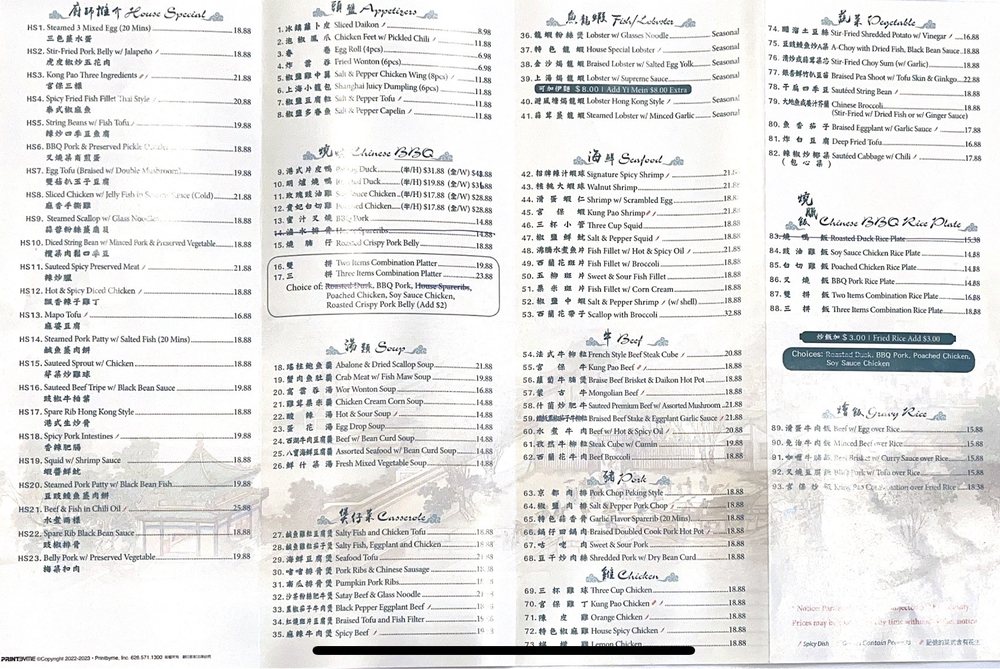 廚師推介 House Special
HS1. Steamed 3 Mixed Egg (20 Mins) 18.88
三色蒸水蛋
HS2. Stir-Fried Pork Belly w/ Jalapeño 18.88
虎皮椒炒五花肉
HS3. Kong Pao Three Ingredients 21.88
宮保三樣
HS4. Spicy Fried Fish Fillet Thai Style 20.88
泰式椒麻魚
HS5. String Beans w/ Fish Tofu 19.88
辣炒四季豆魚腐
HS6. BBQ Pork & Preserved Pickle 18.88
叉燒菜甫煎蛋
HS7. Egg Tofu (Braised w/ Double Mushroom) 19.88
雙菇扒玉子豆腐
HS8. Sliced Chicken w/ Jelly Fish in Sauce (Cold) 21.88
麻香手撕雞
HS9. Steamed Scallop w/ Glass Noodles
蒜蓉粉絲蒸扇貝
HS10. Diced String Bean w/ Minced Pork & Preserved Vegetable 18.88
欖菜肉鬆四季豆
HS11. Sauteed Spicy Preserved Meat 21.88
辣炒臘
HS12. Hot & Spicy Diced Chicken 18.88
飄香辣子雞丁
HS13. Mapo Tofu 16.88
麻婆豆腐
HS14. Steamed Pork Patty w/ Salted Fish (20 Mins) 18.88
鹹魚蒸肉餅
HS15. Sauteed Sprout w/ Chicken 18.88
芽菜炒雞球
HS16. Sauteed Beef Tripe w/ Black Bean Sauce 19.88
豉椒牛柏葉
HS17. Spare Rib Hong Kong Style 18.88
港式生炒骨
HS18. Spicy Pork Intestines 19.88
香辣肥腸
HS19. Squid w/ Shrimp Sauce 18.88
蝦醬鮮魷
HS20. Steamed Pork Patty w/ Black Bean Fish 19.88
豆豉鯪魚蒸肉餅
HS21. Beef & Fish in Chili Oil 25.88
水煮兩樣
HS22. Spare Rib Black Bean Sauce 18.88
豉椒排骨
HS23. Belly Pork w/ Preserved Vegetable 19.88
梅菜扣肉
PRINTBYME ©Copyright 2022-2023 • Printbyme, Inc. 626.571.1300
頭盤 Appetizers
1. 冰鎮蘿卜皮 Sliced Daikon 8.98
2. 泡椒鳳爪 Chicken Feet w/ Pickled Chili 11.88
3. 春卷 Egg Roll (4pcs) 6.98
4. 炸雲吞 Fried Wonton (6pcs) 6.98
5. 椒鹽雞中翼 Salt & Pepper Chicken Wing (8pcs) 11.88
6. 上海小籠包 Shanghai Juicy Dumpling (6pcs) 11.88
7. 椒鹽豆腐粒 Salt & Pepper Tofu 11.88
8. 椒鹽多春魚 Salt & Pepper Capelin 11.88
燒 Chinese BBQ
9. 港式片皮鴨 Duck (半/H) $31.88 (全/W)
10. 明爐燒鴨 Duck (半/H) $19.88 (全/W)
11. 玫瑰豉油雞 Chicken (半/H) $17.88 (全/W) $28.88
12. 貴妃白切雞 Poached Chicken (半/H) $17.88 (全/W) $28.88
13. 蜜汁叉燒 BBQ Pork 14.88
14. 滷水排骨 House Spareribs 14.88
15. 燒腩仔 Roasted Crispy Pork Belly 18.88
16. 雙拼 Two Items Combination Platter 19.88
17. 三拼 Three Items Combination Platter 23.88
Choice of: Roasted Duck, BBQ Pork, House Spareribs,
Poached Chicken, Soy Sauce Chicken,
Roasted Crispy Pork Belly (Add $2)
湯類 Soup
18. 瑤柱鮑魚羹 Abalone & Dried Scallop Soup 21.88
19. 蟹肉魚肚羹 Crab Meat w/ Fish Maw Soup 19.88
20. 窩雲吞湯 Wor Wonton Soup 16.88
21. 雞茸粟米羹 Chicken Cream Corn Soup 14.88
22. 酸辣湯 Hot & Sour Soup 14.88
23. 蛋花湯 Egg Drop Soup 14.88
24. 西湖牛肉豆腐羹 Beef w/ Bean Curd Soup 14.88
25. 八寶海鮮豆腐羹 Assorted Seafood w/ Bean Curd Soup 14.88
26. 鮮什菜湯 Fresh Mixed Vegetable Soup 14.88
煲仔菜 Casserole
27. 鹹魚雞粒豆腐煲 Salty Fish and Chicken Tofu 18.88
28. 鹹魚雞粒茄子煲 Salty Fish, Eggplant and Chicken 18.88
29. 海鮮豆腐煲 Seafood Tofu 21.88
30. 啫啫排骨煲 Pork Ribs & Chinese Sausage
31. 南瓜排骨煲 Pumpkin Pork Ribs
32. 沙茶粉絲肥牛煲 Satay Beef & Glass Noodle
33. 黑椒茄子牛肉煲 Black Pepper Eggplant Beef
34. 紅燒班片豆腐煲 Braised Tofu and Fish Filet
35. 麻辣牛肉煲 Spicy Beef
魚龍蝦 Fish/Lobster
36. 龍蝦粉絲煲 Lobster w/ Glasses Noodle Seasonal
37. 特色龍蝦 House Special Lobster Seasonal
38. 金沙焗龍蝦 Braised Lobster w/ Salted Egg Yolk Seasonal
39. 上湯焗龍蝦 Lobster w/ Supreme Sauce Seasonal
可加伊麵 $8.00 | Add Yi Mein $8.00 Extra
40. 避風塘焗龍蝦 Lobster Hong Kong Style Seasonal
41. 蒜茸蒸龍蝦 Steamed Lobster w/ Minced Garlic Seasonal
海鮮 Seafood
42. 招牌辣汁蝦球 Signature Spicy Shrimp
43. 核桃大蝦球 Walnut Shrimp
44. 滑蛋蝦仁 Shrimp w/ Scrambled Egg
45. 宮保蝦 Kung Pao Shrimp
46. 三杯小管 Three Cup Squid
47. 椒鹽鮮魷 Salt & Pepper Squid
48. 鴻圖水煮魚片 Fish Fillet w/ Hot & Spicy Oil
49. 西蘭花斑片 Fish Fillet w/ Broccoli 18.88
50. 五柳斑片 Sweet & Sour Fish Fillet 18.88
51. 粟米斑片 Fish Fillet w/ Corn Cream 18.88
52. 椒鹽中蝦 Salt & Pepper Shrimp (w/ shell) 18.88
53. 西蘭花帶子 Scallop with Broccoli 32.88
牛 Beef
54. 法式牛柳粒 French Style Beef Steak Cube 20.88
55. 宮保牛 Kung Pao Beef 18.88
56. 蘿蔔牛腩煲 Braise Beef Brisket & Daikon Hot Pot 18.88
57. 蒙古牛 Mongolian Beef 18.88
58. 什菌炒肥牛 Sauteed Premium Beef w/ Assorted Mushroom 21.88
59. Braised Beef Stake & Eggplant Garlic Sauce 21.88
60. 水煮牛肉 Beef w/ Hot & Spicy Oil 20.88
61. 孜然牛柳粒 Steak Cube w/ Cumin 19.88
62. 西蘭花牛肉 Beef Broccoli 18.88
豬 Pork
63. 京都肉排 Pork Chop Peking Style 18.88
64. 椒鹽肉排 Salt & Pepper Pork Chop 18.88
65. 特色蒜香骨 Garlic Flavor Sparerib (20 Mins) 18.88
66. 鍋仔回鍋肉 Braised Doubled Cook Pork Hot Pot 18.88
67. 咕咾肉 Sweet & Sour Pork 18.88
68. 豆干炒肉絲 Shredded Pork w/ Dry Bean Curd 18.88
雞 Chicken
69. 三杯雞球 Three Cup Chicken 18.88
70. 宮保雞丁 Kung Pao Chicken 18.88
71. 陳皮雞 Orange Chicken 18.88
72. 特色椒麻雞 House Spicy Chicken 18.88
73. Lemon Chicken
蔬菜 Vegetable
74. 醋溜土豆絲 Stir-Fried Shredded Potato w/ Vinegar 16.88
75. 豆豉鯪魚炒A菜 A-Choy with Dried Fish, Black Bean Sauce 18.88
76. 清炒或蒜茸菜芯 Stir-Fried Choy Sum (w/ Garlic) 18.88
77. 銀杏鮮竹扒豆苗 Braised Pea Shoot w/ Tofu Skin & Ginkgo 22.88
78. 干扁四季豆 Sautéed String Bean
79. 大地魚或薑汁芥蘭 Chinese Broccoli 18.88
(Stir-Fried w/ Dried Fish or w/ Ginger Sauce)
80. 魚香茄子 Braised Eggplant w/ Garlic Sauce 17.88
81. 炸白豆腐 Deep Fried Tofu 16.88
82. 辣椒炒椰菜 Sautéed Cabbage w/ Chili 17.88
(包心菜)
燒臘飯 Chinese BBQ Rice Plate
83. 燒鴨飯 Roasted Duck Rice Plate 15.38
84. 豉油雞飯 Soy Sauce Chicken Rice Plate 14.88
85. 白切雞飯 Poached Chicken Rice Plate 14.88
86. 叉燒飯 BBQ Pork Rice Plate 14.88
87. 雙拼飯 Two Items Combination Rice Plate 16.88
88. 三拼飯 Three Items Combination Rice Plate 18.88
炒飯加 $3.00 | Fried Rice Add $3.00
Choices: Roasted Duck, BBQ Pork, Poached Chicken,
Soy Sauce Chicken
燴飯 Gravy Rice
89. 滑蛋牛肉飯 Beef w/ Egg over Rice 15.88
90. 免治牛肉飯 Minced Beef over Rice 15.88
91. 咖喱牛腩飯 Beef Brisket w/ Curry Sauce over Rice 15.88
92. 叉燒豆腐飯 BBQ Pork w/ Tofu over Rice 15.88
93. 宮保炒飯 Kung Pao Combination over Fried Rice 18.38
* Notice:
Prices may be time without notice
Spicy Dish Contain Peanuts